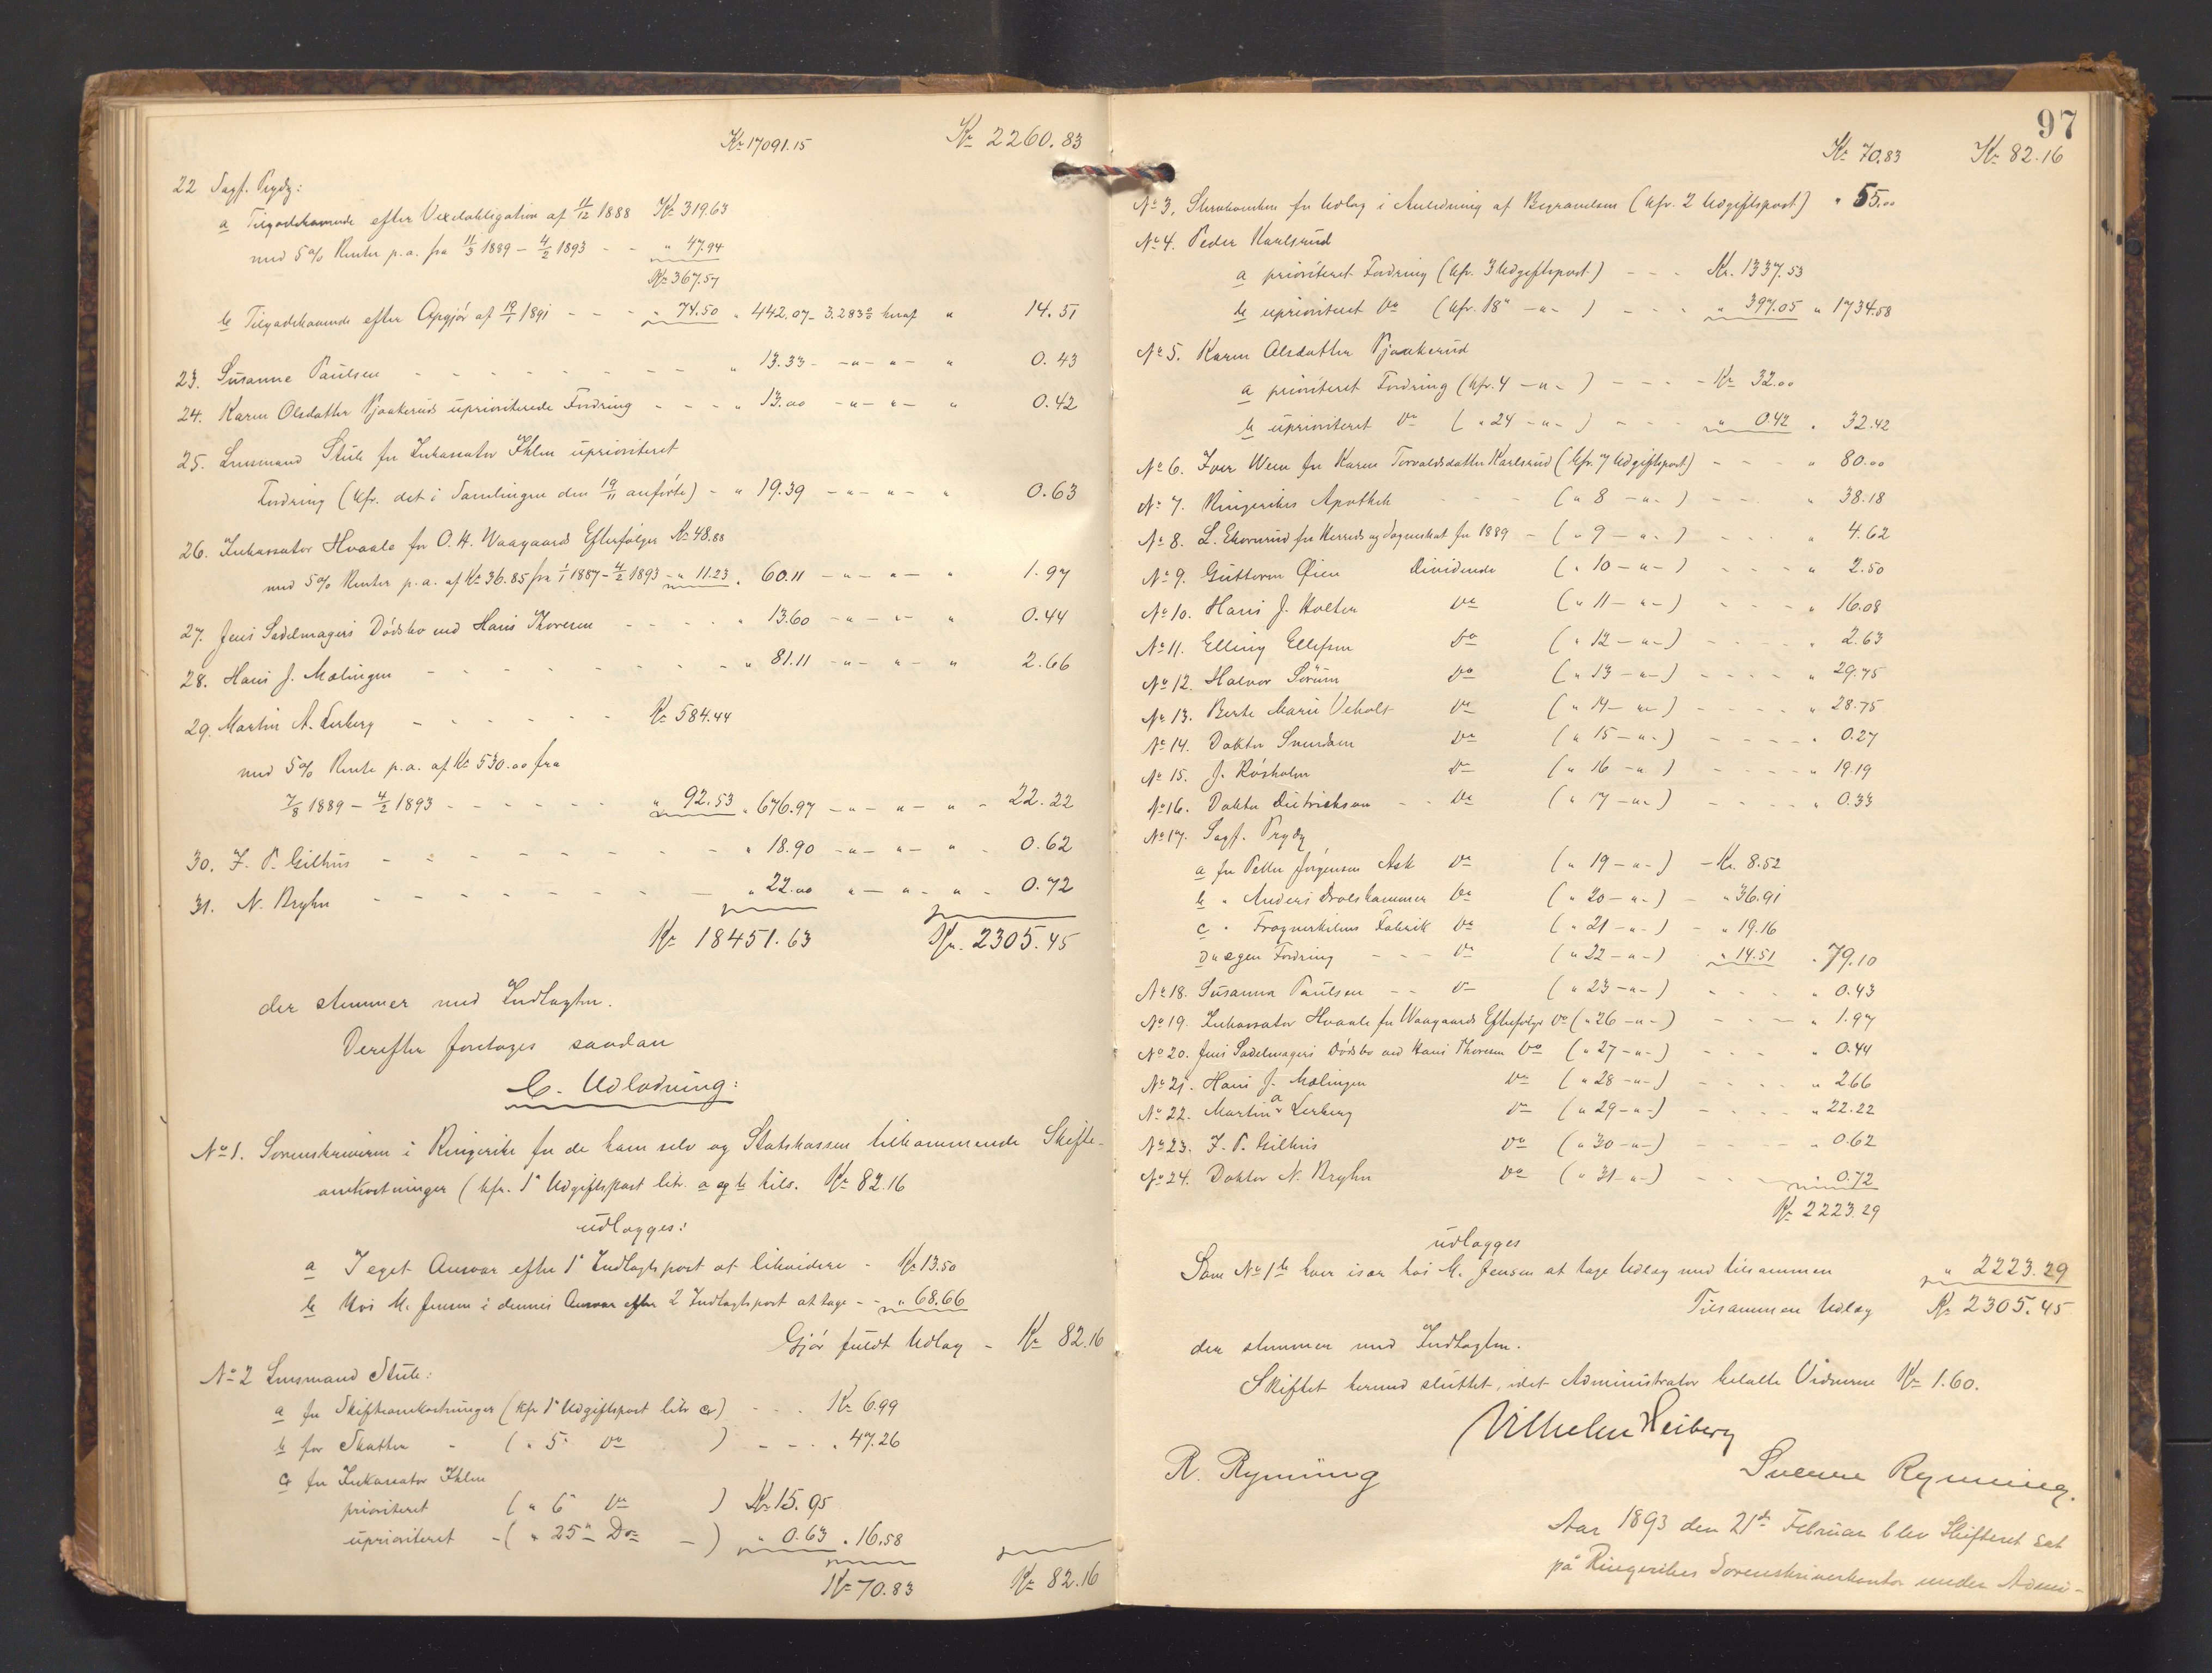 Kr 17091.15 Kr 2260.83
22 Sagf. Prydz:
a Tilgodehavende efter Vexelobligation af 11/12 1888 Kr 319.63
med 5% Renter p.a. fra 11/3 1889 – 4/2 1893 - - " 47.94
Kr 367.57
b Tilgodehavende efter Opgjör af 19/1 1891 - - - " 74.50 " 442.07 - 3.283% heraf " 14.51
23. Susanne Paulsen - - - - - " 13.33 - -"- "- " 0.43
24. Karen Olsdatter Pjaakeruds uprioriterede Fordring - - - " 13.00 -"- "- " 0.42
25. Lensmand Stub for Inkassator Ihlen uprioriteret
Fordring (kfr. det i Samlingen den 19/11 anförte) - " 19.39 -"- "- " 0.63
26. Inkassator Hvaale for O. H. Waagaards Efterfølger Kr 48.88
med 5% Renter p.a. af Kr 36.85 fra 1/1 1887 - 4/2 1893 - " 11.23 " 60.11 -"- "- " 1.97
27. Jens Sadelmagers Dödsbo ved Hans Thoresen - - - - " 13.60 -"- "- " 0.44
28. Hans J. Mælingen - - - - - - " 81.11 -"- "- " 2.66
29. Martin A. Lerberg - - - - - Kr 584.44
med 5% Rente p.a. af Kr 530.00 fra
7/8 1889 - 4/2 1893 - - - - - " 92.53 " 676.97 -"- "- " - 22.22
30. F. P. Gilhus - - - - - - " 18.90 -"- "- " - 0.62
31. N. Bryhn - - - - - - " 22.00 "- " - " - 0.72
Kr 18451.63 Kr. 2305.45
der stemmer med Indtægten.
Derefter foretoges saadan
C. Udlodning:
No 1. Sorenskriveren i Ringerike for de ham selv og Statskassen tilkommende Skifte-
omkostninger (kfr. 1ste Udgiftspost litr. a og b tils. Kr 82.16
udlægges:
a I eget Ansvar efter 1ste Indtægtspost at likvidere - Kr 13.50
b Hos M. Jensen i dennes Ansvar efter 2 Indtægtspost at tage - - " 68.66
Gjör fuldt Udlæg - Kr 82.16
No 2 Lensmand Stub:
a for Skifteomkostninger (kfr 1ste Udgiftspost litr c) - - - Kr 6.99
b for Skatter - ( " 5te Do ) - - - " 47.26
c for Inkassator Ihlen
prioriteret ( " 6te Do ) Kr 15.95
uprioriteret - ( " 25te Do - ) " 0.63 " 16.58
Kr 70.83 Kr 82.16
97
Kr 70.83 Kr 82.16
No 3, for Udlæg i Anledning af Begravelsen (kfr. 2 Udgiftspost) " 55.00
No 4. Peder Karlsrud
a prioriteret Fordring (kfr. 3 Udgiftspost) - - - Kr. 1337.53
b uprioriteret Do (kfr. 18de -"- ) - - - " 397.05 " 1734.58
No 5. Karen Olsdatter Pjaakerud
a prioriteret Fordring (kfr. 4 -"- ) - - - Kr 32.00
b uprioriteret Do ( " 24 -"- ) - - - " 0.42 " 32.42
No 6. Iver Wem for Karen Torvaldsdatter Karlsrud (kfr. 7 Udgiftspost) - - - " 80.00
No 7. Ringerikes Apothek - - - ( " 8 -"- ) - - - " 38.18
No 8. L. Ekornrud for Herreds og Sogneskat for 1889 - ( " 9 -"- ) - - - " 4.62
No 9. Guttorm Øien Dividende ( " 10 -"- ) - - - " 2.50
No 10. Hans J. Holten Do ( " 11 -"- ) - - - " 16.08
No 11. Elling Ellefsen Do ( " 12 -"- ) - - - " 2.63
No 12. Halvor Sörum Do ( " 13 -"- ) - - - " 29.75
No 13. Berte Marie Veholt Do ( " 14 -"- ) - - - " 28.75
No 14. Doktor Do ( " 15 -"- ) - - - " 0.27
No 15. J. Rösholm Do ( " 16 -"- ) - - - " 19.19
No 16. Doktor Dietrichson - - Do ( " 17 -"- ) - - - " 0.33
No 17. Sagf. Prydz
a for Petter Jörgensen Ask Do ( " 19 -"- ) - Kr. 8.52
b " Anders Drolshammer Do ( " 20 -"- ) - " 36.91
c " Frognerkilens Fabrik Do ( " 21 -"- ) - " 19.16
d " egen Fordring - - - Do ( " 22 -"- ) " 14.51 " 79.10
No 18. Susanna Paulsen - - Do ( " 23 -"- ) - - " 0.43
No 19. Inkassator Hvaale for Waagaards Efterfølger Do ( " 26 -"- ) - - - " 1.97
No 20. Jens Sadelmagers Dödsbo ved Hans Thoresen Do ( " 27 -"- ) - - - " 0.44
No 21. Hans J. Mælingen Do ( " 28 -"- ) - - - " 2.66
No 22. Martin A. Lerberg Do ( " 29 -"- ) - - - " 22.22
No 23. F. P. Gilhus Do ( " 30 -"- ) - - - " 0.62
No 24. Doktor N. Bryhn Do ( " 31 -"- ) - - - " 0.72
Kr 2223.29
udlægges
Som No 1 b hver især hos M. Jensen at tage Udlæg med tilsammen " 2223.29
Tilsammen Udlæg Kr 2305.45
der stemmer med Indtægten.
Skiftet hermed sluttet, idet Administrator betalte Vidnerne Kr 1.60.
Vilhelm Heiberg
R. Rynning Sverre Rynning.
Aar 1893 den 21de Februar blev Skifteret sat
på Ringerikes Sorenskriverkontor under Admi-